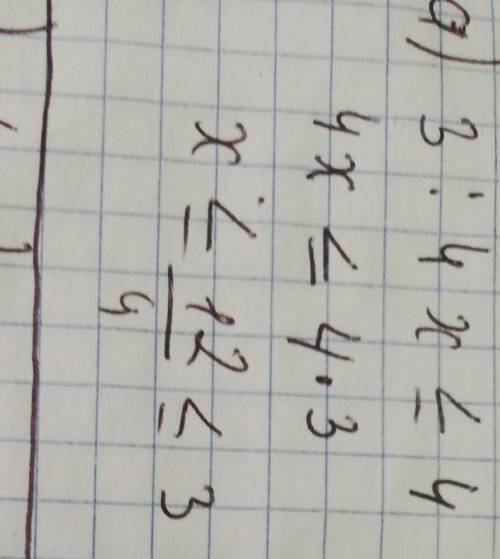 a) 3 : 4x ≤ 4
4x ≤ 4 · 3
x ≤ 12/4 ≤ 3